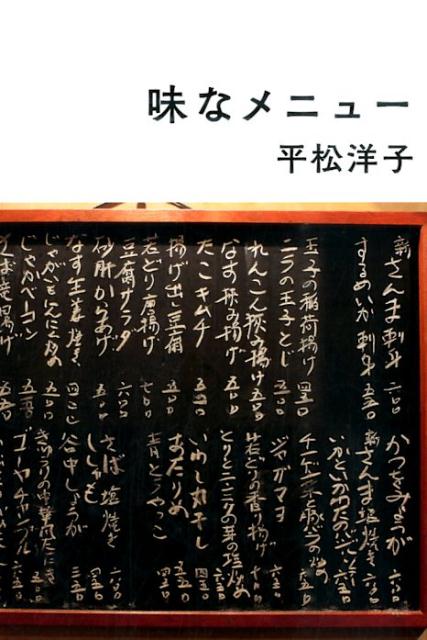 味なメニュー
平松洋子
新さんま刺身 六〇〇
するめいか刺身 五五〇
王子の稲荷揚げ 四五〇
ニラの玉子とじ 五五〇
れんこん挟み揚げ 五五〇
なす挟み揚げ 五五〇
たこキムチ 五五〇
揚げ出し豆腐 五五〇
若どり唐揚げ 七〇〇
豆腐サラダ 六〇〇
砂肝からあげ 五五〇
なす生姜焼き
じゃがもんにんにく炒め
じゃがベーコン 五五〇
かつをみょうが
新さんま塩焼き
いかといかわたのバター
チンゲン菜
ジャガマヨ
若どりの香り揚げ
とりとニンニクの芽の塩炒め
いわし丸干し
あたりめ
青とうやっこ
さば塩焼き
ししゃも
谷中しょうが
きゅうりの中華風たたき
ゴーヤチャンプル